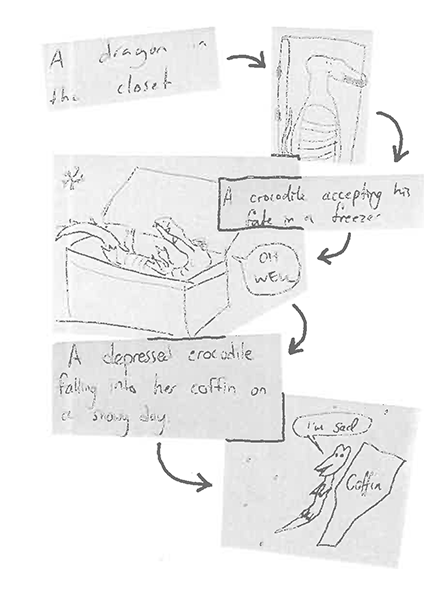 A dragon in
the closet
A crocodile accepting his
fate in a freezer
OH
WELL
A depressed crocodile
falling into her coffin on
a snowy day.
I'm sad
Coffin